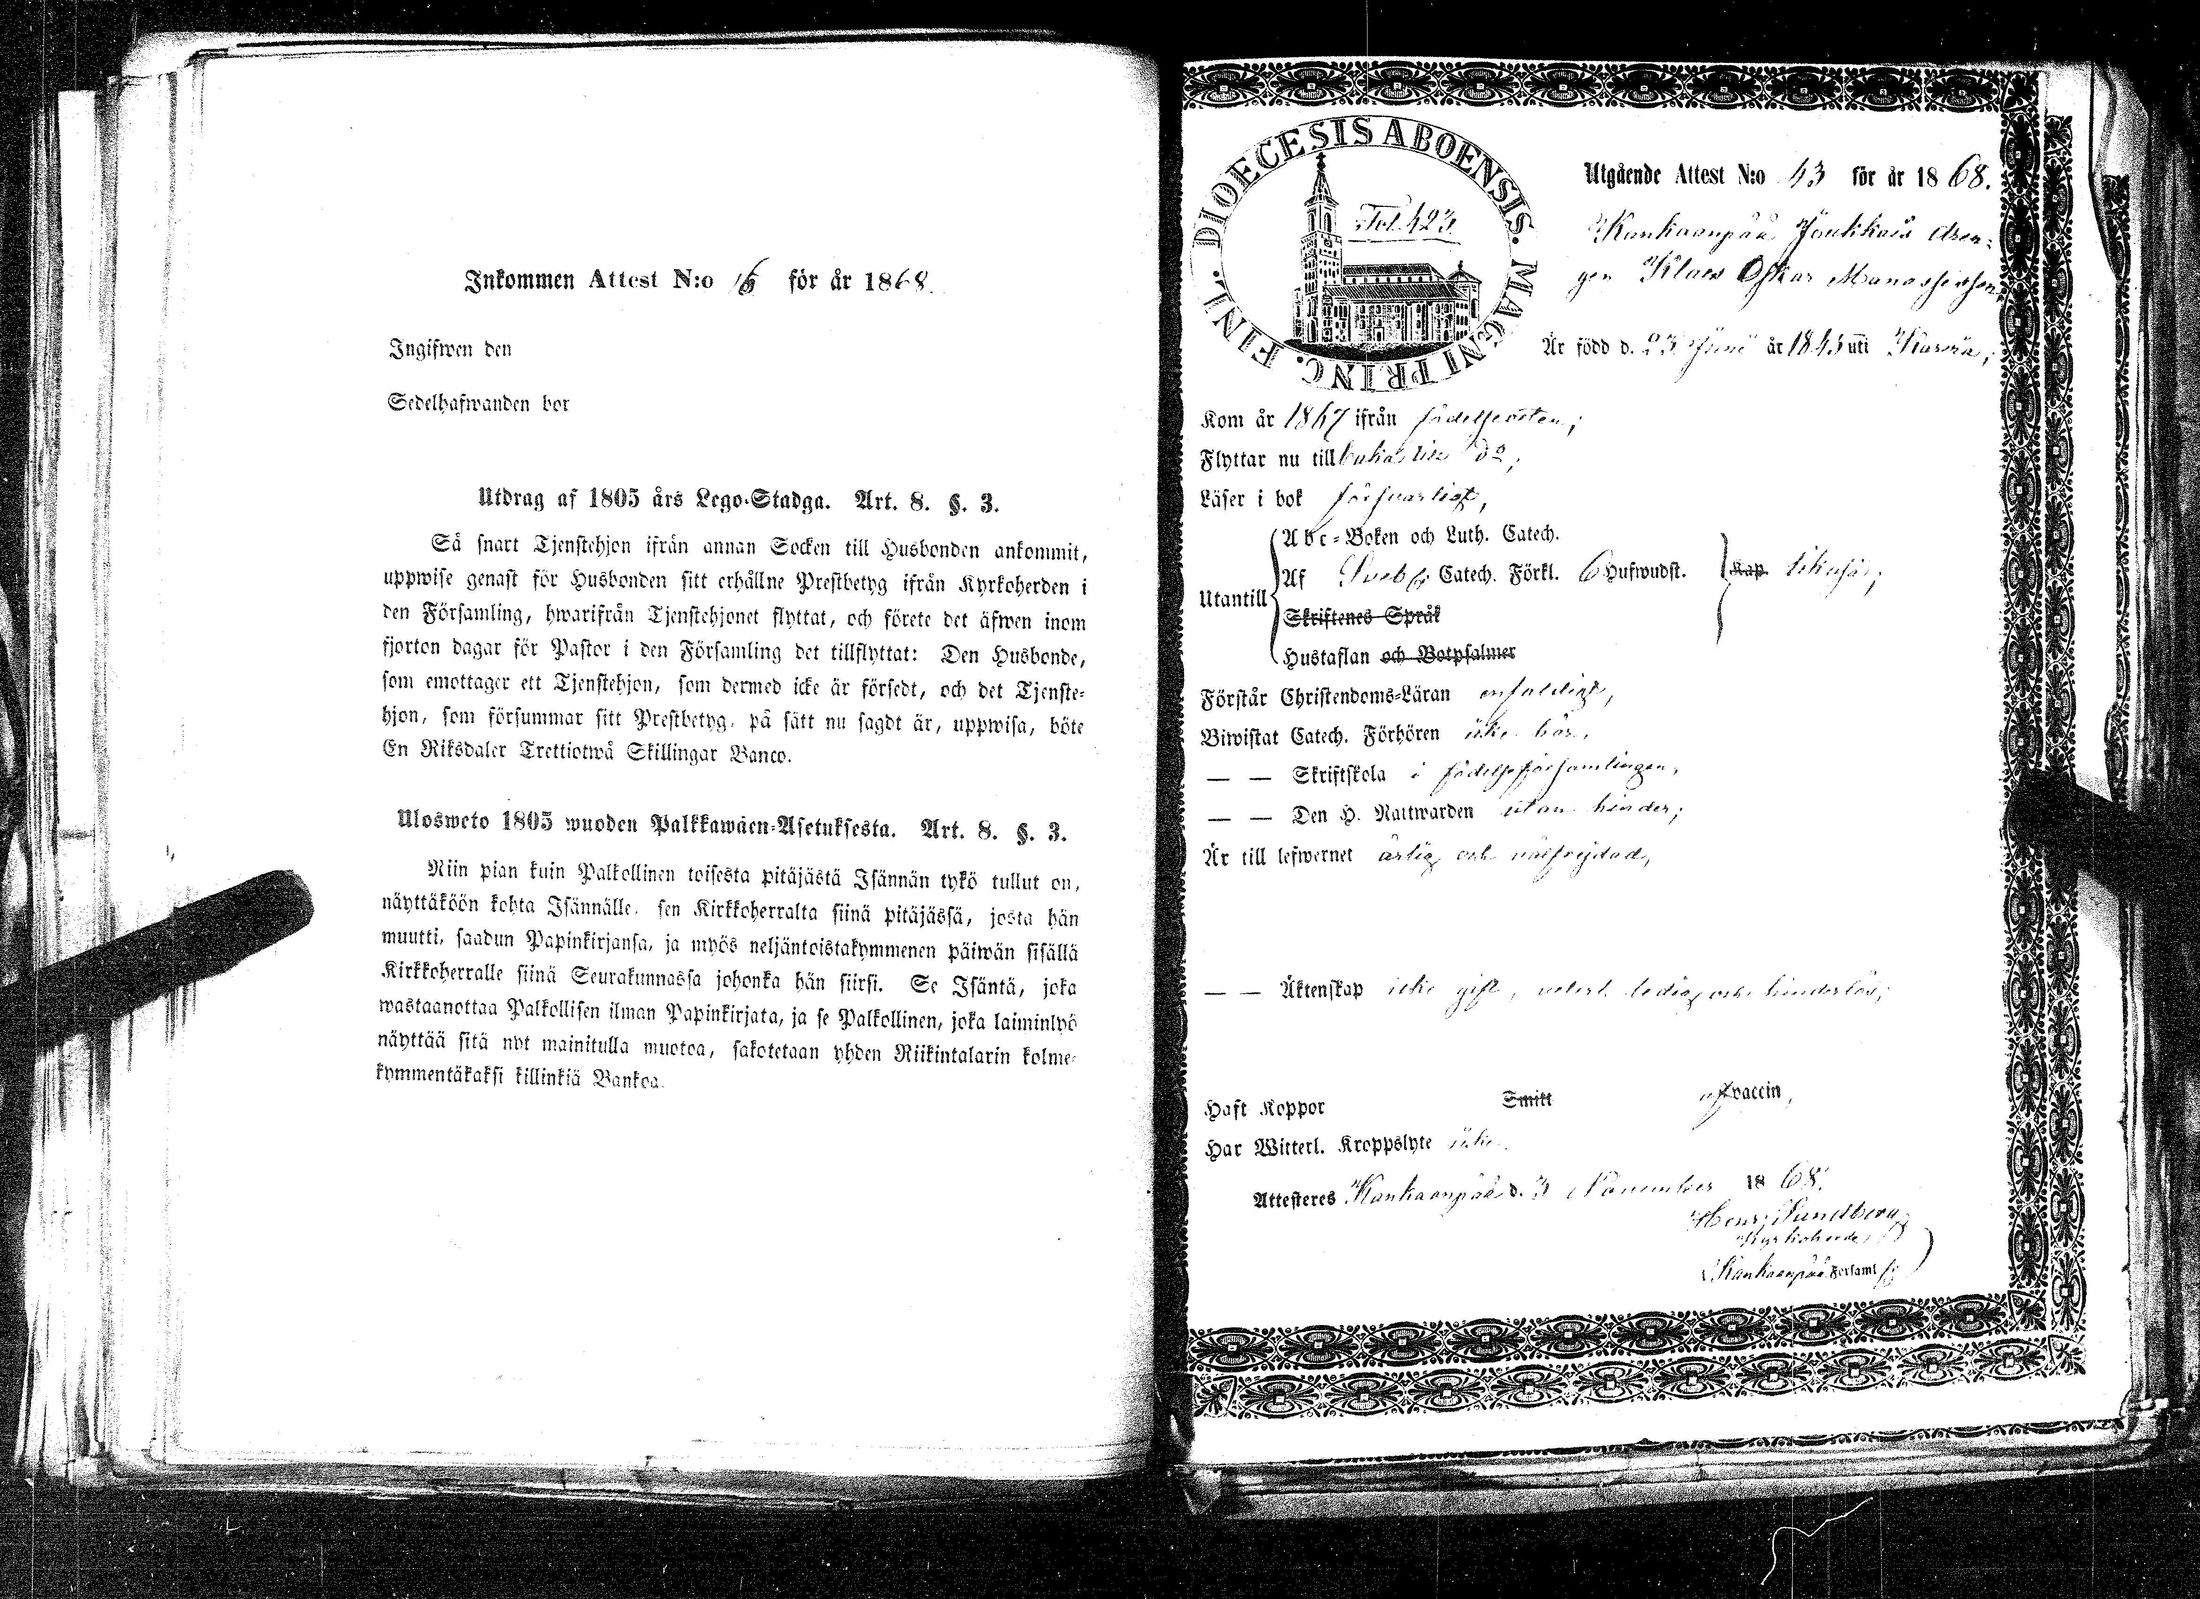 Inkommen Attest N:o 16 för år 1868.
Ingifwen den
Sedelhafwanden bor
Utdrag af 1805 års Lego-Stadga. Art. 8. §. 3.
Så snart Tjenstehjon ifrån annan Socken till Husbonden ankommit,
uppwise genast för Husbonden sitt erhållne Prestbetyg ifrån Kyrkoherden i
den Församling, hwarifrån Tjenstehjonet flyttat, och förete det äfwen inom
fjorton dagar för Pastor i den Församling det tillflyttat: Den Husbonde,
som emottager ett Tjenstehjon, som dermed icke är försedt, och det Tjenste-
hjon, som försummar sitt Prestbetyg, på sätt nu sagdt är, uppwisa, böte
En Riksdaler Trettiotwå Skillingar Banco.
Ulosweto 1805 wuoden Palkkawäen-Asetuksesta. Art. 8. §. 3.
Niin pian kuin Palkollinen toisesta pitäjästä Isännän tykö tullut on,
näyttäköön kohta Isännälle, sen Kirkkoherralta siinä pitäjässä, josta hän
muutti, saadun Papinkirjansa, ja myös neljäntoistakymmenen päiwän sisällä
Kirkkoherralle siinä Seurakunnassa johonka hän siirsi. Se Isäntä, joka
wastaanottaa Palkollisen ilman Papinkirjata, ja se Palkollinen, joka laiminlyö
näyttää sitä nyt mainitulla muotoa, sakotetaan yhden Riikintalarin kolme-
kymmentäkaksi killinkiä Bankoa.
DIOECESIS ABOENSIS. MAGNI PRINC. FINL.
Fol. 423.
Utgående Attest N:o 43 för år 1868.
Kankaanpää Joukkais dren-
gen Klaes Oskar Manassesson
Är född d. 23 Juni år 1845 uti Karvia;
Kom år 1867 ifrån födelseorten;
Flyttar nu till do;
Läser i bok försvarligt,
Abc-Boken och Luth. Catech.
Utantill Af Sveb:s Catech. Förkl. 6 Hufwudst. Kap. likaså;
Skriftenes Språk
Hustaflan och Botpsalmer
Förstår Christendoms-Läran enfaldigt,
Biwistat Catech. Förhören icke här,
— — Skriftskola i födelseförsamlingen,
— — Den H. Nattwarden utan hinder;
Är till lefwernet ärlig och välfrejdad,
— — Äktenskap icke gift, ledig och hinderlös;
Haft Koppor Smitt af vaccin,
Har Witterl. Kroppslyte icke.
Attesteres Kankaanpää d. 3 November 1868.
Henr. Sundberg
Kyrkoherde
Kankaanpää Forsaml